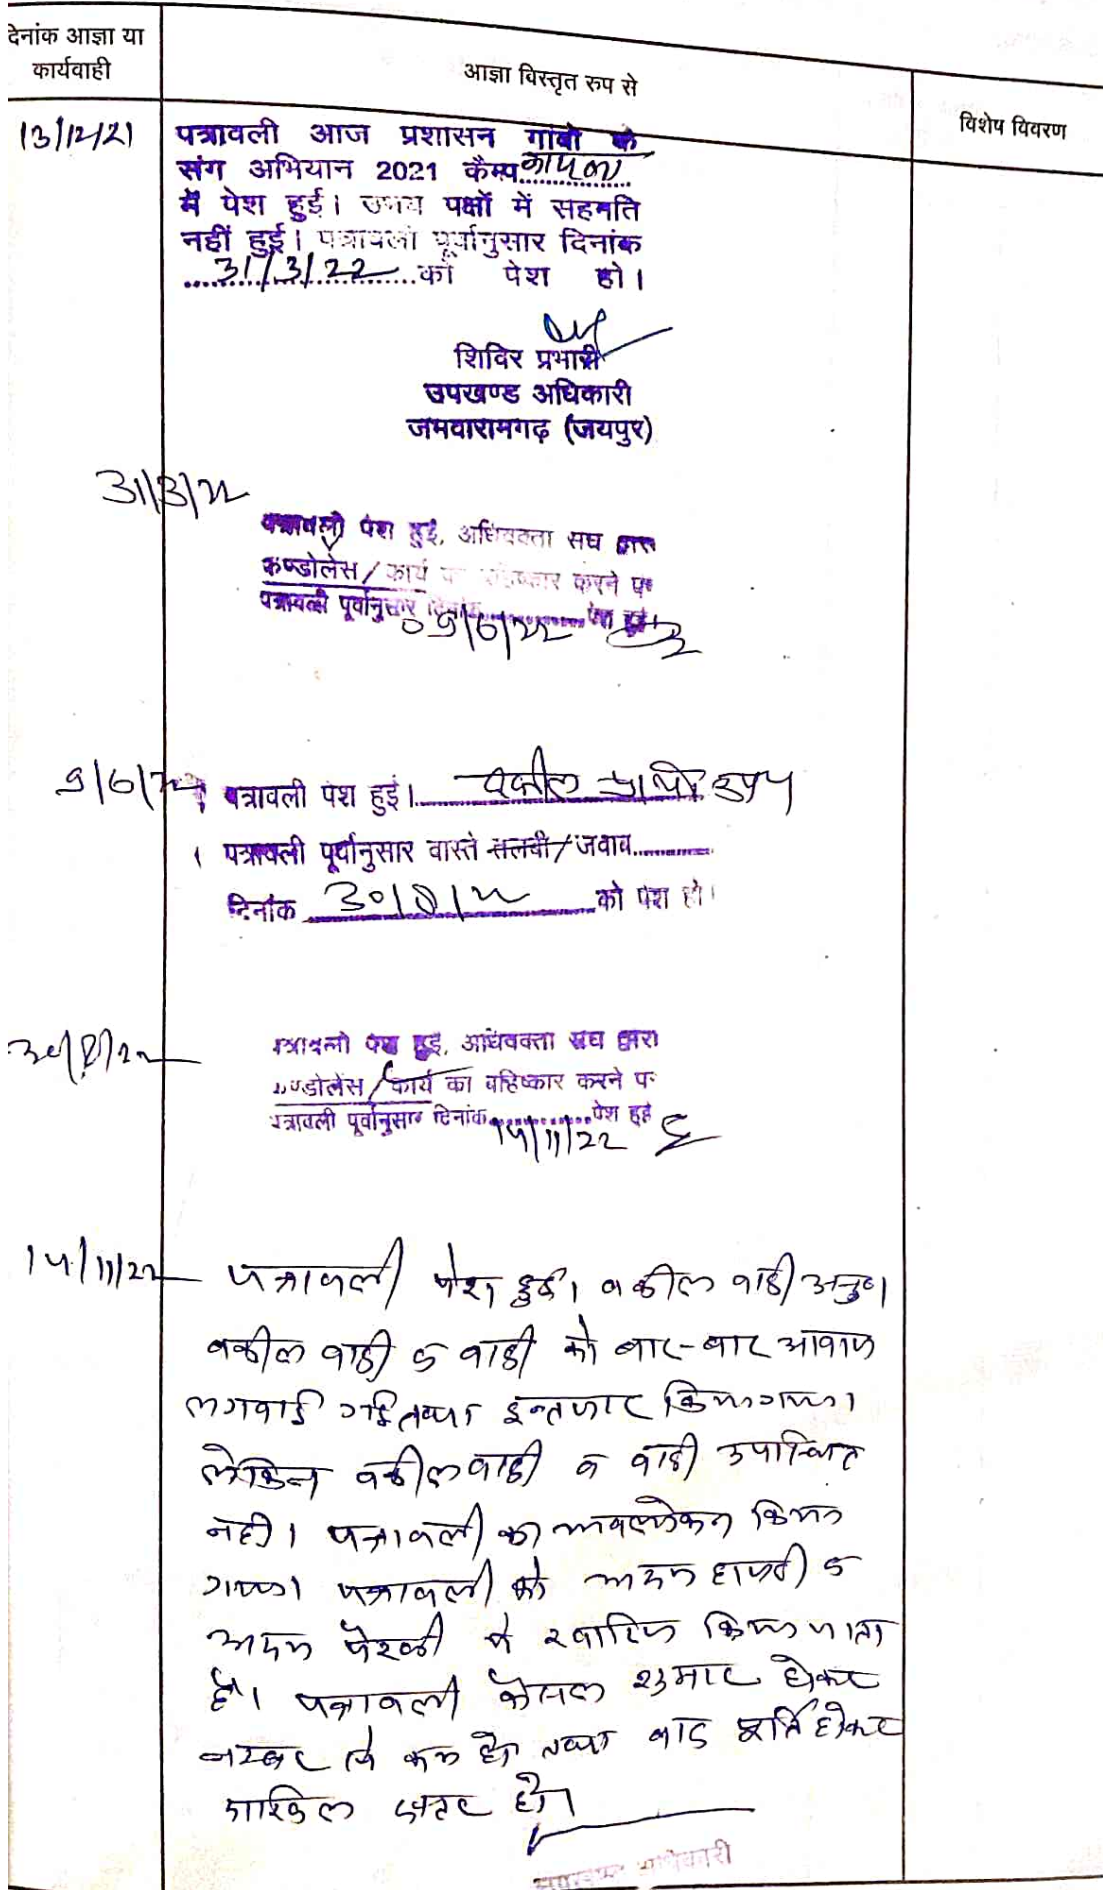 दिनांक आज्ञा या
कार्यवाही
आज्ञा विस्तृत रुप से
विशेष विवरण
13/12/21
पत्रावली आज प्रशासन गांवों के
संग अभियान 2021 कैम्प
में पेश हुई। उभय पक्षों में सहमति
नहीं हुई। पत्रावली पूर्वानुसार दिनांक
31/3/22 को पेश हो।
शिविर प्रभारी
उपखण्ड अधिकारी
जमवारामगढ़ (जयपुर)
31/3/22
पत्रावली पेश हुई, अधिवक्ता संघ द्वारा
कण्डोलेंस / कार्य का बहिष्कार करने पर
पत्रावली पूर्वानुसार दिनांक 09/6/22 पेश हुई
9/6/22
पत्रावली पेश हुई। वकील प्रार्थी उप
पत्रावली पूर्वानुसार वास्ते तलवी / जवाब
दिनांक 30/8/22 को पेश हो।
30/8/22
पत्रावली पेश हुई, अधिवक्ता संघ द्वारा
कण्डोलेंस / कार्य का बहिष्कार करने पर
पत्रावली पूर्वानुसार दिनांक 14/11/22 पेश हुई
14/11/22
पत्रावली पेश हुई। वकील वादी अनु०।
वकील वादी व वादी को बार-बार आवाज
लगवाई गई तथा इन्तजार किया गया।
लेकिन वकील वादी व वादी उपस्थित
नही। पत्रावली का अवलोकन किया
गया। पत्रावली को अदम हाजरी व
अदम पैरवी में खारिज किया जाता
है। पत्रावली फैसल शुमार होकर
नम्बर से कम हो तथा बाद पूर्ति होकर
दाखिल दफ्तर हो।
उपखण्ड अधिकारी